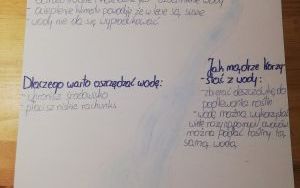 - ocieplenie klimatu powoduje że w lecie są susze
- wody nie da się wyprodukować
Dlaczego warto oszczędzać wodę:
- chronisz środowisko
- płacisz niskie rachunki
Jak mądrze korzy-
stać z wody:
- zbierać deszczówkę do
podlewania roślin
- wodę można wykorzystać
można podlać rośliny tą
samą wodą